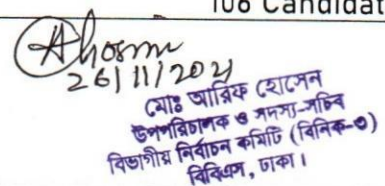 108 Candidat
26/11/2024
মোঃ আরিফ হোসেন
উপপরিচালক ও সদস্য-সচিব
বিভাগীয় নির্বাচন কমিটি (বিনিক-৩)
বিবিএস, ঢাকা।